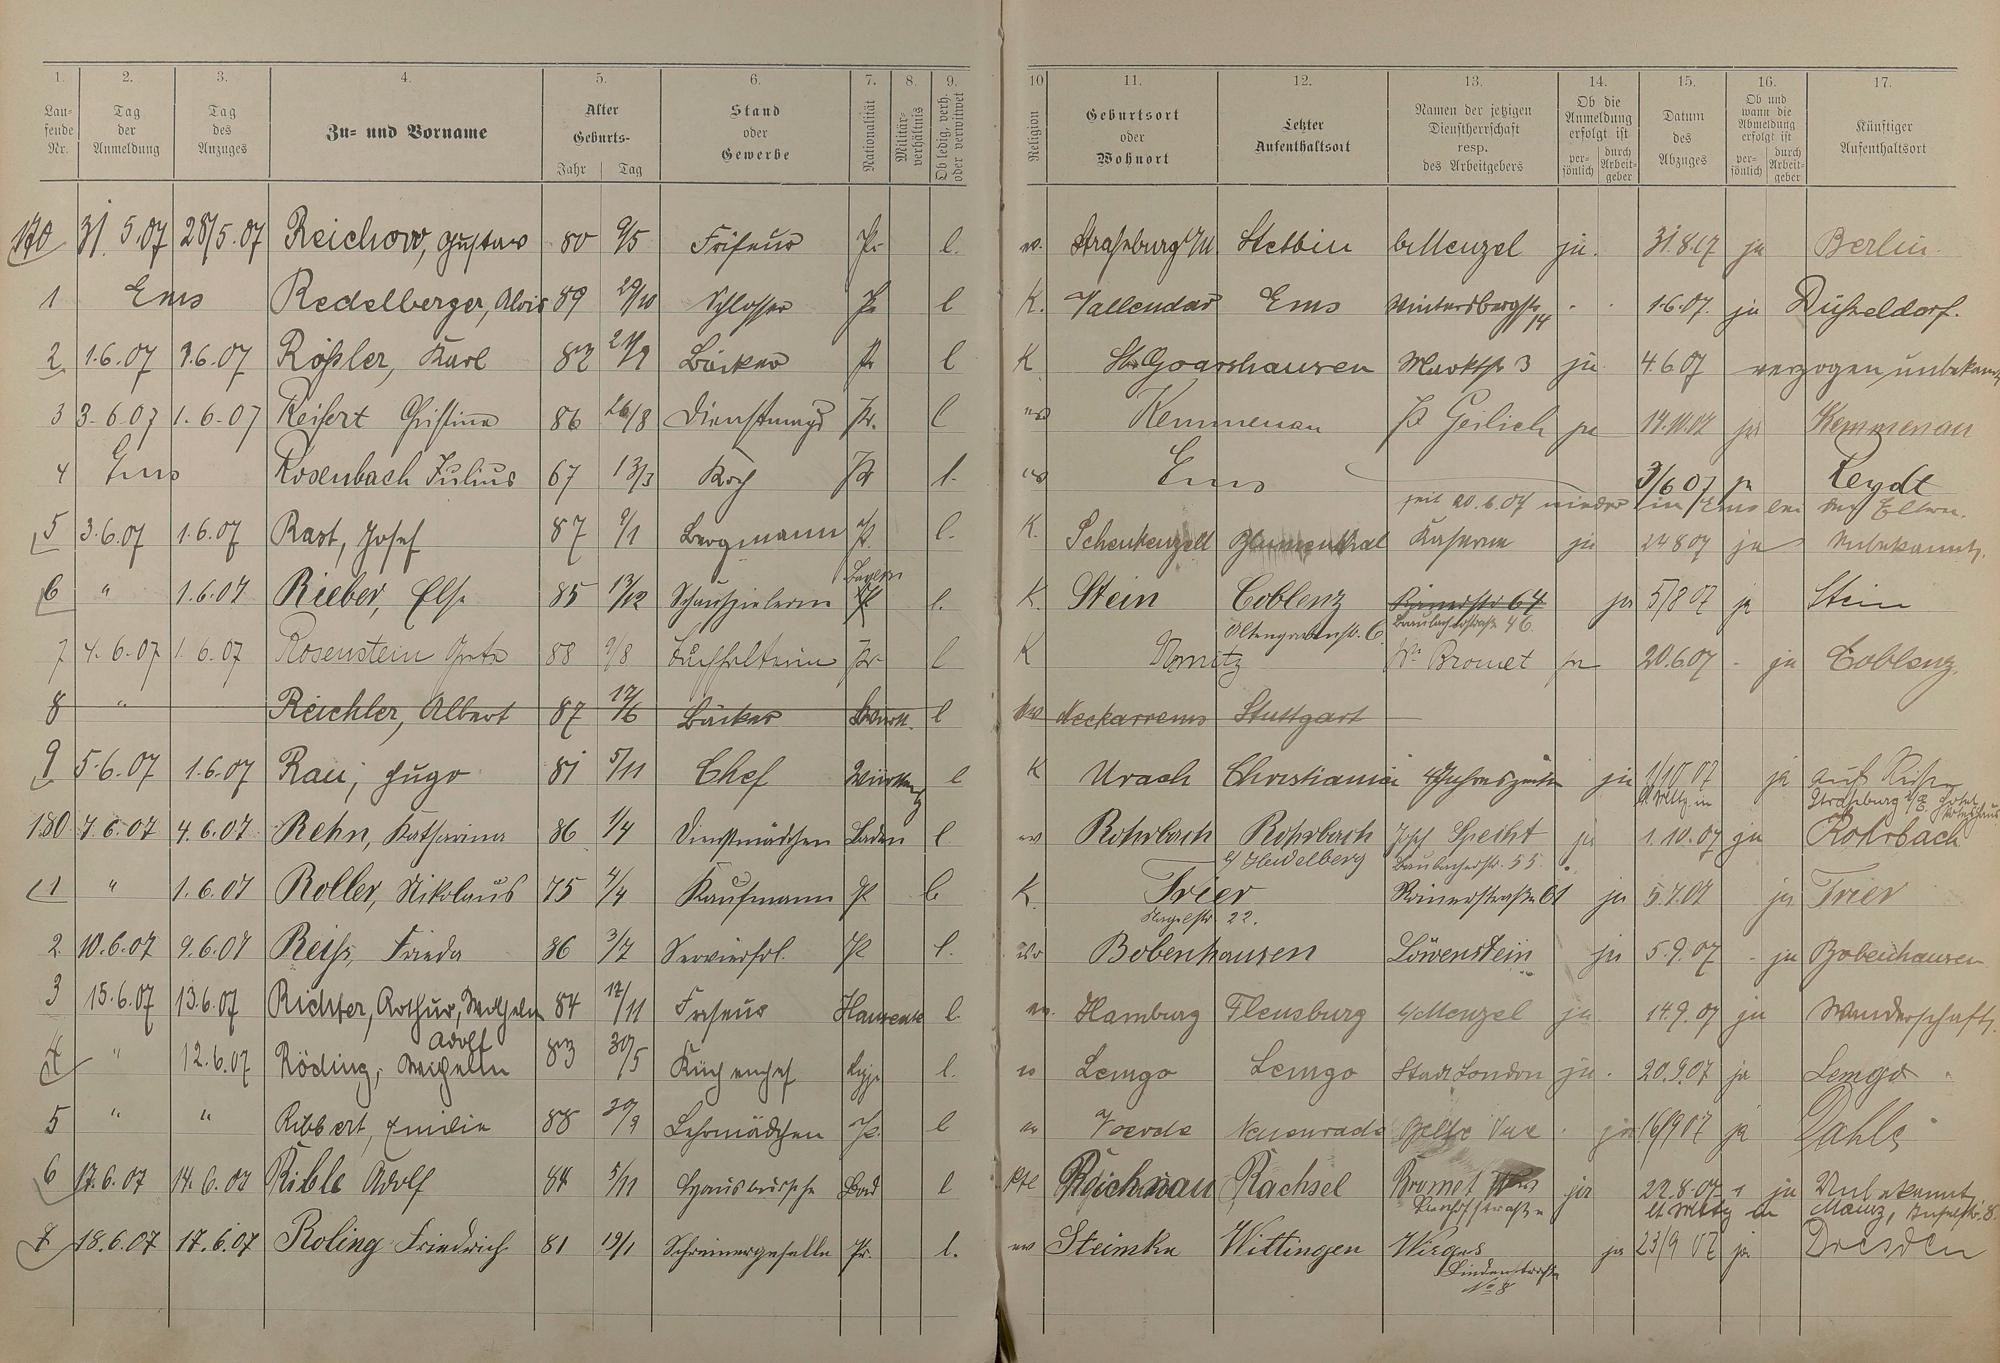 1. 2. 3. 4. 5. 6. 7. 8. 9. 10 11. 12. 13. 14. 15. 16. 17.
Lau-fende Nr. Tag der Anmeldung Tag des Anzuges Zu- und Vorname Alter Geburts- Jahr Tag Stand oder Gewerbe Nationalität Militär-verhältnis Ob ledig, verh. oder verwitwet Religion Geburtsort oder Wohnort Letzter Aufenthaltsort Namen der jetzigen Dienstherrschaft resp. des Arbeitgebers Ob die Anmeldung erfolgt ist per-sönlich durch Arbeit-geber Datum des Abzuges Ob und wann die Abmeldung erfolgt ist per-sönlich durch Arbeit-geber Künftiger Aufenthaltsort
170 31. 5.07 28/5.07 Reichow, Gustav 80 9/5 Friseur Pr. l. ev. Straßburg Stettin b/Menzel ja. 31.8.07 ja Berlin.
1 Ems Redelberger, Alois 89 29/10 Schlosser Pr l K. Vallendar Ems Wintersbergstr 14 1.6.07. ja Düsseldorf.
2 1.6.07 1.6.07 Rößler, Karl 82 Bäcker Pr l K St. Goarshausen Marktstr 3 ja 4.6.07 verzogen, unbekannt
3 3.6.07 1.6.07 Reifert Christine 86 26/8 Dienstmagd Pr. l ev Kemmenau Geilich ja ja Kemmenau
4 Ems Rosenbach Julius 67 13/3 Koch Pr l. ev Ems 3/6 07 ja Reydt
seit 20.6.07 wieder in Ems bei den Eltern.
5 3.6.07 1.6.07 Rast, Josef 87 9/1 Bergmann Pr. l. K. Schenkenzell Blumenthal Kaserne ja 24 8 07 ja Unbekannt.
6 " 1.6.07 Rieber, Else 85 13/12 Schauspielerin Bayern l. K. Stein Coblenz Römerstr 64 ja 5/8 07 ja Stein
Altengrabenstr. 6. Braubacherstraße 46
7 4.6.07 1.6.07 Rosenstein Grete 88 9/8 Buchhalterin Pr. l K Bromet ja 20.6.07 - ja Coblenz.
8 " Reichler, Albert 87 17/6 Bäcker Württ. l ev Neckarrems Stuttgart
9 5.6.07 1.6.07 Rau, Hugo 81 5/11 Chef Württembg l K Urach Christiania 4 Jahreszeiten ja 1/10 07 ja auf Reisen
Straßburg i/E. Hotel
180 7.6.07 4.6.07 Rehn, Katharina 86 1/4 Dienstmädchen Baden l ev Rohrbach Rohrbach Josef Specht ja 1.10.07 ja Rohrbach
b/ Heidelberg Braubacherstr. 55.
1 " 1.6.07 Roller, Nikolaus 75 4/4 Kaufmann Pr l. K. Trier Römerstraße 61 ja 5.7.07 ja Trier
Nagelstr. 22.
2. 10.6.07 9.6.07 Reiß, Frieda 86 3/7 Servierfrl. Pr l. ev Bobenhausen Löwenstein ja 5.9.07 - ja Bobenhausen
3 15.6.07 13.6.07 Richter, Arthur, Wilhelm 84 17/11 Friseur Hanseate l. ev. Hamburg Flensburg b/Menzel ja 14.9.07 ja Wanderschaft.
4 " 12.6.07 Röding, Adolf Wilhelm 83 30/5 Küchenchef Lippe l. ev Lemgo Lemgo Stadt London ja. 20.9.07 ja Lemgo "
5 " " Ribbert, Emilie 88 Lehrmädchen Pr. l ev Voerde Neuenrade Belle Vue ja 16/9 07 ja Dahle
6 17.6.07 14.6.07 Rible Adolf 84 5/11 Hausbursche Bad l Ktl Reichnau Rachsel Bromet ja 22.8.07 ja Unbekannt
Bahnhofstraße lt Mttlg in Mainz, 8.
7 18.6.07 17.6.07 Roling Friedrich 81 19/1 Schreinergeselle Pr. l. ev Steimke Wittingen Wirges ja 23/9 07 ja Dresden
Lindenstraße
No 8